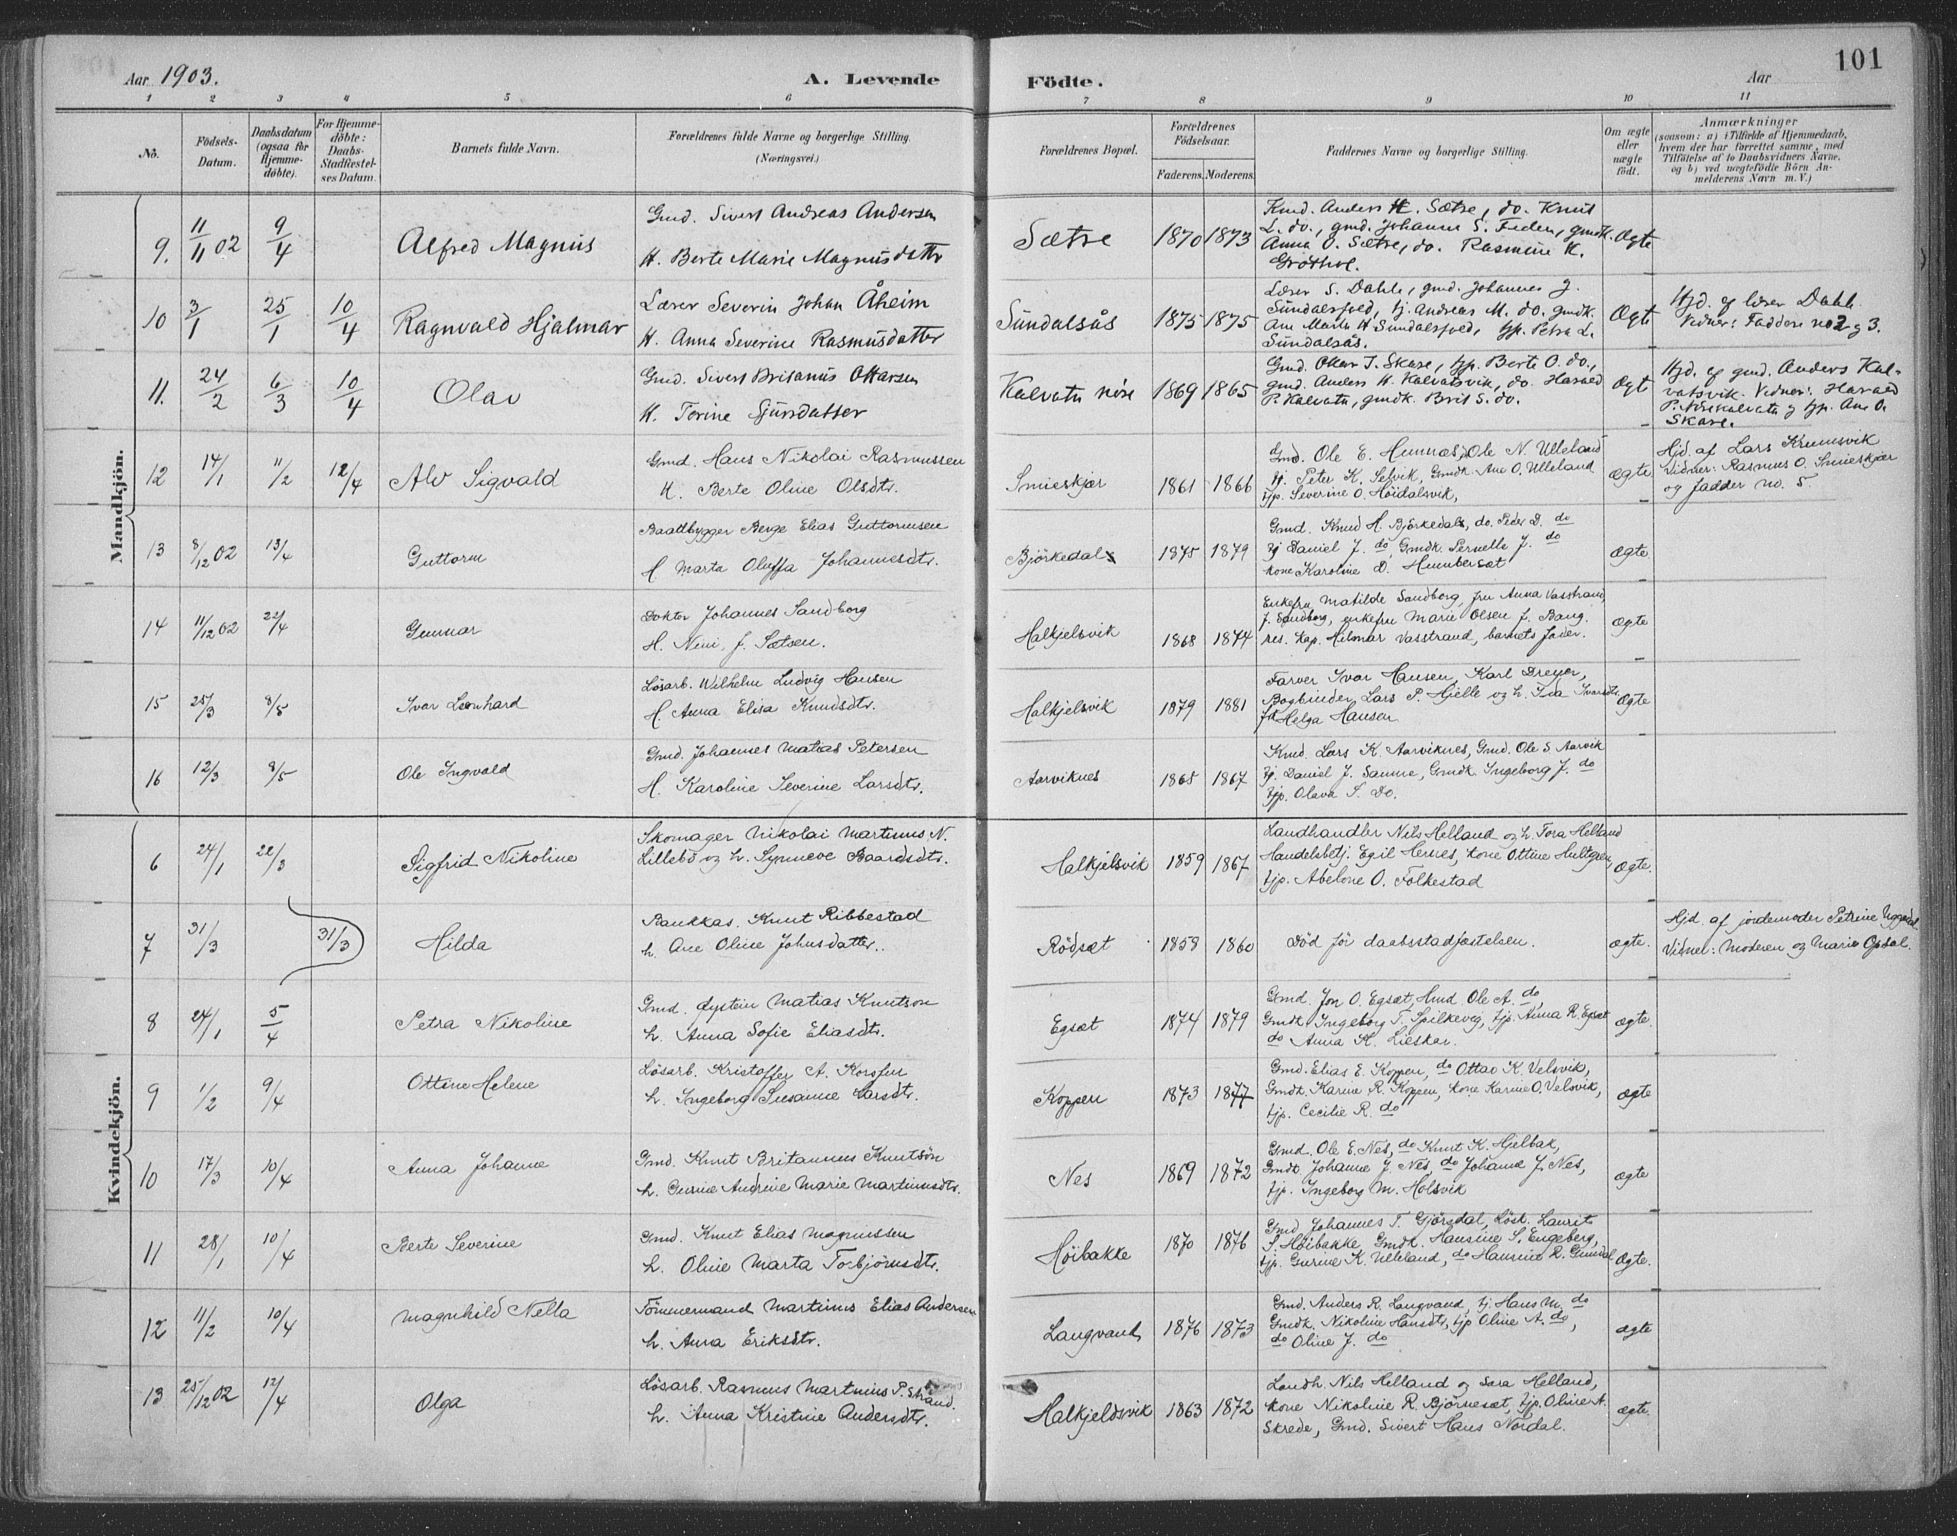 Aar 1903.
A. Levende Födte.
Aar
101
1 2 3 4 5 6 7 8 9 10 11
No.
Födsels-Datum.
Daabsdatum (ogsaa for Hjemme-döbte).
For Hjemme-döbte: Daabs-Stadfæstel-ses Datum.
Barnets fulde Navn.
Forældrenes fulde Navne og borgerlige Stilling. (Næringsvei.)
Forældrenes Bopæl.
Forældrenes Födselsaar.
Faderens. Moderens.
Faddernes Navne og borgerlige Stilling.
Om ægte eller nægte født.
Anmærkninger
(saasom: a) i Tilfælde af Hjemmedaab, hvem der har forrettet samme, med Tilföielse af to Daabsvidners Navne, og b) ved uægtefödte Börn Anmelderens Navn m. V.)
Mandkjön.
9. 11/11 02 9/4 Alfred Magnus
Gmd. Sivert Andreas Andersen
H. Berte Marie Magnusdatter
Sætre 1870 1873
Kmd. Anders K. Sætre, do. Knut
L. do., gmd. Johanne S. , gmdk.
Anna O. Sætre, do. Rasmine K.
Grøthol.
Ægte
10 3/1 25/1 10/4 Ragnvald Hjalmar
Lærer Severin Johan Åheim
H. Anna Severine Rasmusdatter
Sundalsås 1875 1875
Lærer S. Dahle, gmd. Johannes J.
Sundalsfoed, tj. Andreas M. do. gmdk.
Ane Marta H Sundalsfoed, tjp. Petra L.
Sundalsås.
Ægte
Hjd. af lærer Dahle.
Vidner: Faddere no 2 og 3.
11. 24/2 6/3 10/4 Olav
Gmd. Sivert Britanus Ottarsen
H. Torine Sjursdatter
Kalvatn nöre 1869 1865
Gmd. Ottar J. Skare, tjp. Berte O. do.,
gmd. Anders H. Kalvatsvik, do. Harald
P. Kalvatn, gmdk. Brit S. do.
Ægte
Hjd. af gmd. Anders Kal-
vatsvik. Vidner: Harald
P. Nörekalvatn og tjp. Ane O.
Skare.
12 14/1 11/2 12/4 Alv Sigvald
Gmd. Hans Nikolai Rasmussen
H. Berte Oline Olsdtr.
Smieskjær 1861 1866
Gmd. Ole E. Humnes, Ole N. Ulleland
tj. Peter K. Selvik, Gmdk. Ane O. Ulleland
tjp. Severine O. Höidalsvik,
Ægte
Hjd. af Lars Krumsvik
Vidner: Rasmus O. Smieskjær
og fadder no. 5.
13 8/12 02 13/4 Guttorm
Baattbygger Berge Elias Guttormsen
H. Marta Oluffa Johannesdtr.
Björkedal 1875 1879
Gmd. Knud H. Björkedal, do. Peder D. do
tj Daniel J. do, Gmdk. Pernelle J. do
kone Karoline D. Humbersæt
Ægte
14 11/12 02 22/4 Gunnar
Doktor Johannes Sandborg
H. Nini, f. Sætsen.
Halkjelsvik 1868 1874
Enkefru Matilde Sandborg, fru Anna Vasstrand,
f. Sandborg, enkefru Marie Olsen f. Bang.
res. kap. Hilmar Vasstrand, barnets fader.
Ægte
15 25/3 8/5 Ivar Leonhard
Lösarb. Wilhelm Ludvig Hansen
H. Anna Elisa Knudsdtr.
Halkjelsvik 1879 1881
Farver Ivar Hansen, Karl Dreyer,
Bogbinder Lars P. Hjelle og h. Ida Ivarsdtr.
Helga Hansen
Ægte
16 12/3 8/5 Ole Ingvald
Gmd. Johannes Matias Petersen
H. Karoline Severine Larsdtr.
Aarviknes 1865 1867
Kmd. Lars K. Aarviknes, Gmd. Ole S Aarvik
tj. Daniel J. Samme, Gmdk. Ingeborg J. do
tjp. Olava S. Do.
Kvindekjön.
6 24/1 22/3 Sigfrid Nikoline
Skomager Nikolai Martinus N.
Lillebö og h. Synneve Baardsdtr.
Halkjelsvik 1859 1867
Landhandler Nils Helland og h. Tora Helland
Handelsbetj. Egil Hernes, kone Ottine Hultgren,
tjp. Abelone O. Folkestad
ægte.
7 31/3 31/3 Hilda
Bankkas. Knut Ribbestad
h. Ane Oline Johnsdatter.
Rödsæt 1858 1860
Död för daabsstadfæstelsen.
ægte.
Hjd. af jordemoder Petrine Uggedal.
Vidner: Moderen og Marie Opdal.
8 24/1 5/4 Petra Nikoline
Gmd. Øystein Matias Knutson
h. Anna Sofie Eliasdtr.
Egsæt 1874 1879
Gmd. Jon O. Egsæt, Kmd Ole A. do,
Gmdk. Ingeborg T. Spilkevig, tjp. Anna R. Egsæt
do Anna K. Lieskar.
ægte.
9 1/2 9/4 Ottine Helene
Lösarb. Kristoffer A. Korsfur
h. Ingeborg Susanne Larsdtr.
Koppen 1873 1877
Gmd. Elias E. Koppen, do Ottar K. Velsvik,
Gmdk. Karine R. Koppen, kone Karine O. Velsvik,
tjp. Cecilie R. do
ægte
10 17/3 10/4 Anna Johanne
Gmd. Knut Britannus Knutsön
h. Gurine Andrine Marie Martinusdtr.
Nes 1869 1872
Gmd. Ole E. Nes, do Knut K. Hjelbak,
Gmdk. Johanne J. Nes, do Johanne J. Nes,
tjp. Ingeborg M. Holsvik
ægte
11 28/1 10/4 Berte Severine
Gmd. Knut Elias Magnussen
h. Oline Marta Torbjörnsdtr.
Höibakke 1870 1876
Gmd. Johannes T. Gjörsdal, Lösk. Laurits
S. Höibakke, Gmdk. Hansine S. Engeberg,
tjp. Gurine K. Ulleland, do Hansine R. Grimdal
Ægte.
12 11/2 10/4 Magnhild Nella
Tömmermand Martinus Elias Andersen
h. Anna Eriksdtr.
Langvand 1876 1873
Gmd. Anders R. Langvand, tj. Hans M. do
Gmdk. Nikoline Hansdtr, tjp Oline A. do,
do Oline J. do
ægte
13 25/12 02 12/4 Olga
Lösarb. Rasmus Martinius P. Strand.
h. Anna Kristine Andersdtr.
Halkjeldsvik 1863 1872
Landh. Nils Helland og Sara Helland,
kone Nikoline R. Björnesæt, tjp. Oline A.
Skrede, Gmd. Sivert Hans Nordal.
ægte.